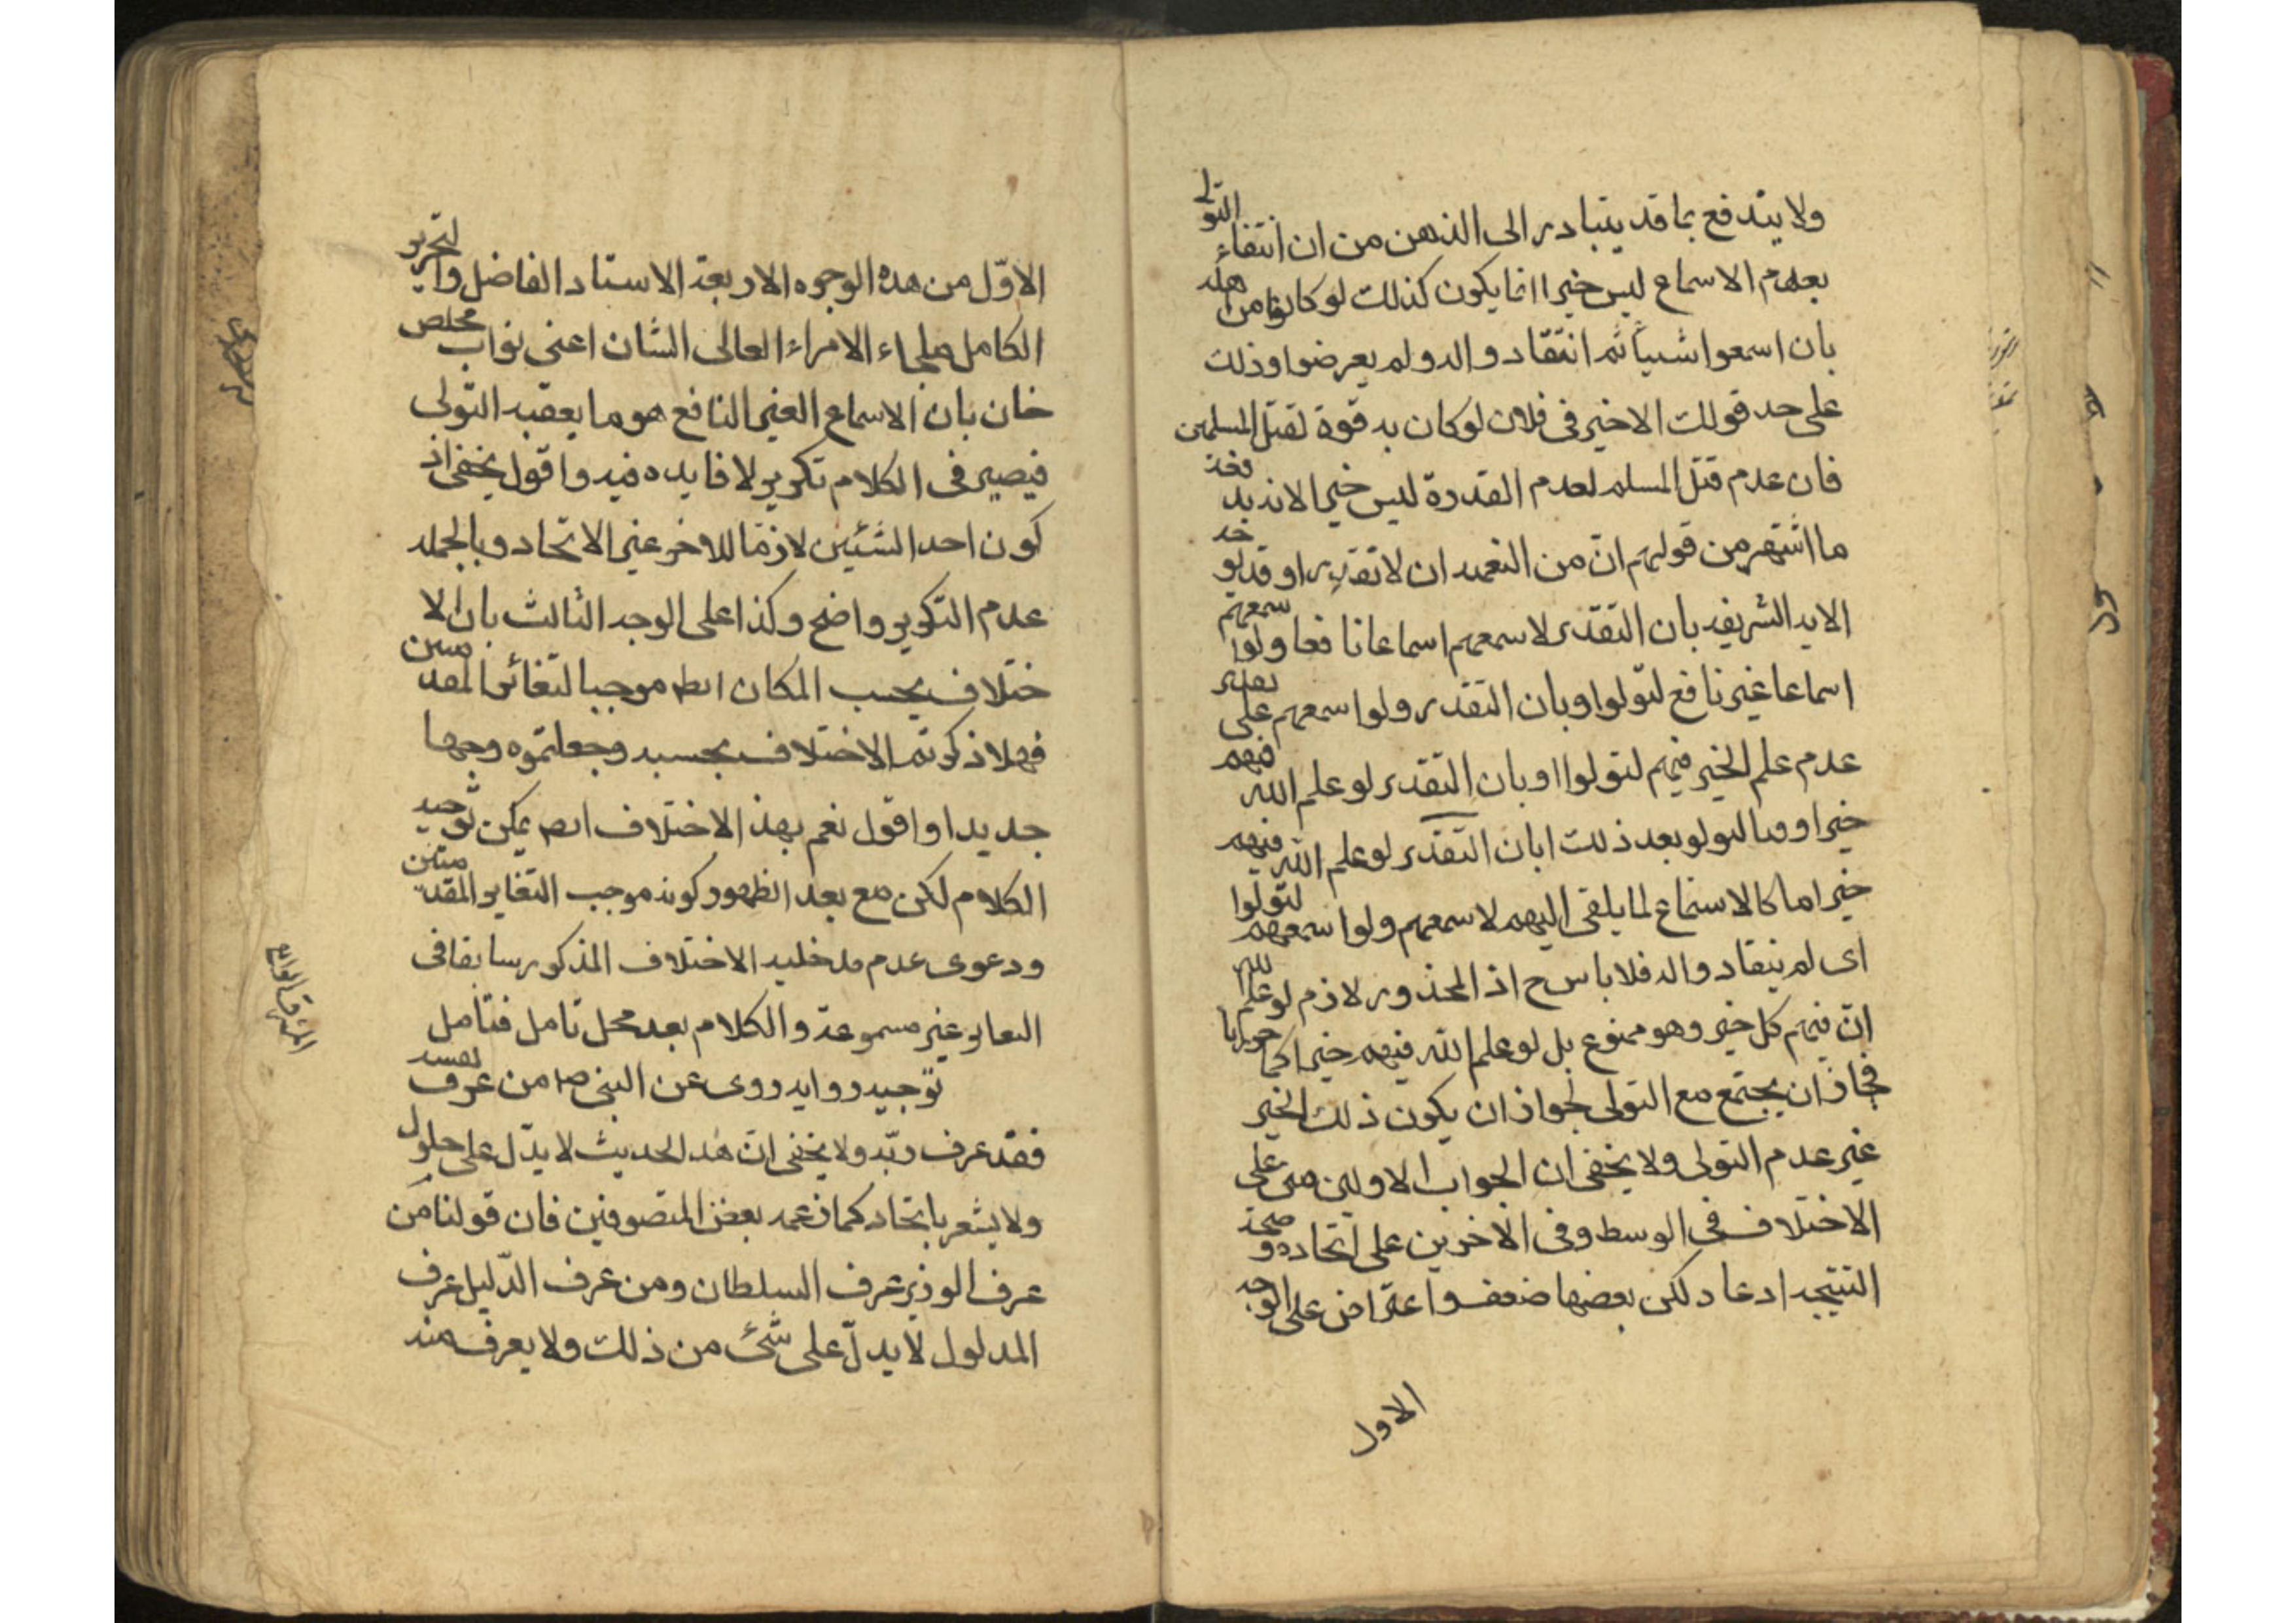 ولا يندفع بما قد يتبادر الى الذهن من ان انتفاء التولى
بعدم الاسماع ليس خيرا انما يكون كذلك لو كانوا من اهله
بان اسمعوا شيئا ثم انتقادو اله ولم يعرضوا وذلك
على حد قولك الاخير فى فلان لو كان به قوة لقتل المسلمين
فان عدم قتل المسلم لعدم القدرة ليس خيرا لانه يد فخذ
ما اشتهر من قولهم ان من النعمه ان لا تقدر او قد يو خد
الايه الشريفه بان التقدر لاسمعهم اسماعا نافعا ولوا سمعهم
اسماعا غير نافع لتولوا وبان التقدر ولوا سمعهم على تقدير
عدم علم الخير فيهم لتولوا او بان التقدر لو علم الله فيهم
خيرا وقتا لتولو بعد ذلك ابان التقدر لو علم الله فيهم
خيرا ما كالاستماع لما يلقى اليهم لاسمعهم ولوا سمعهم لتولوا
اى لم ينقادو اله فلا باس ح اذ المحذور لازم لو علم الله
ان فيهم كل خير وهو ممنوع بل لو علم الله فيهم خيرا كما
فجاز ان يجتمع مع التولى لجواز ان يكون ذلك الخير
غير عدم التولى ولا يخفى ان الجواب الاولين على
الاختلاف فى الوسط وفى الاخرين على اتحاده و صحة
النتيجه ادعاء لكن بعضها ضعف واعتراض على الوجه
الاول
الاوّل من هذه الوجوه الاربعة الاستاد الفاضل والنحرير
الكامل ملجاء الامراء العالى الشان اعنى نواب مخلص
خان بان الاسماع الغير النافع هو ما يعقبه التولى
فيصير فى الكلام تكرير لا فايده فيه واقول يخفى اذ
كون احد الشئين لازما للاخر غير الاتحاد وبالجمله
عدم التكرير واضح وكذا على الوجه الثالث بان الا
ختلاف بحسب المكان ايضا موجبا لتغائر المقد متين
فهلا ذكرتم الاختلاف بحسبه وجعلتموه وجها
جديدا واقول نعم بهذ الاختلاف ايضا يمكن توجيه
الكلام لكن مع بعد الظهور كونه موجب التغاير المقد متين
ودعوى عدم مدخليه الاختلاف المذكور سابقا فى
التغاير غير مسموعة والكلام بعد محل تامل فتامل
توجيه روايه روى عن النبى ص من عرف نفسه
فقد عرف ربّه ولا يخفى ان هذ الحديث لا يدّل على حلول
ولا يشعر باتحاد كما زعمه بعض المتصوفين فان قولنا من
عرف الوزير عرف السلطان ومن عرف الدّليل عرف
المدلول لا يدلّ على شئ من ذلك ولا يعرف منه